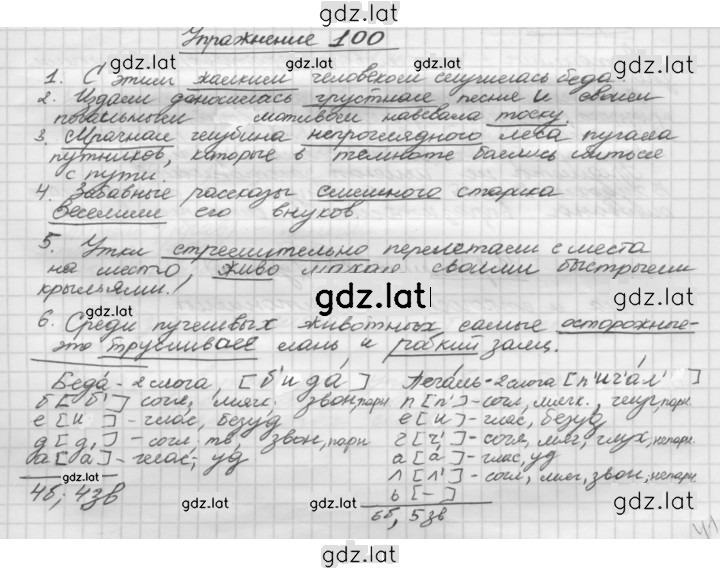 gdz.lat
Упражнение 100
gdz.lat gdz.lat gdz.lat
1. С этим жалким человеком случилась беда.
2. Издали доносилась грустная песня и своим
печальным мотивом навевала тоску.
gdz.lat gdz.lat gdz.lat
3. Мрачная глубина непроглядного леса пугала
путников, которые в темноте боялись сбиться
с пути.
4. Забавные рассказы смешного старика
gdz.lat gdz.lat
веселили его внуков.
5. Утки стремительно перелетали с места
на место, живо махая своими быстрыми
gdz.lat gdz.lat
крыльями.
gdz.lat
6. Среди пугливых животных самые осторожные-
это трусливая лань и робкий заяц.
gdz.lat gdz.lat
Беда́ - 2 слога, [б'ида́]
б [б'] согл, мягк. звон, парн
е [и] - глас, безуд
д [д] - согл, тв звон, парн
а [а́] - глас; уд
4б; 4зв
Печаль - 2 слога [п'ич'ал']
п [п'] - согл, мягк., глух, парн.
е [и] - глас, безуд
ч [ч'] - согл, мяг, глух, непарн
а [а́] - глас, уд
л [л'] - согл, мяг, звон, непарн.
ь [-]
6б, 5зв
gdz.lat gdz.lat gdz.lat
gdz.lat